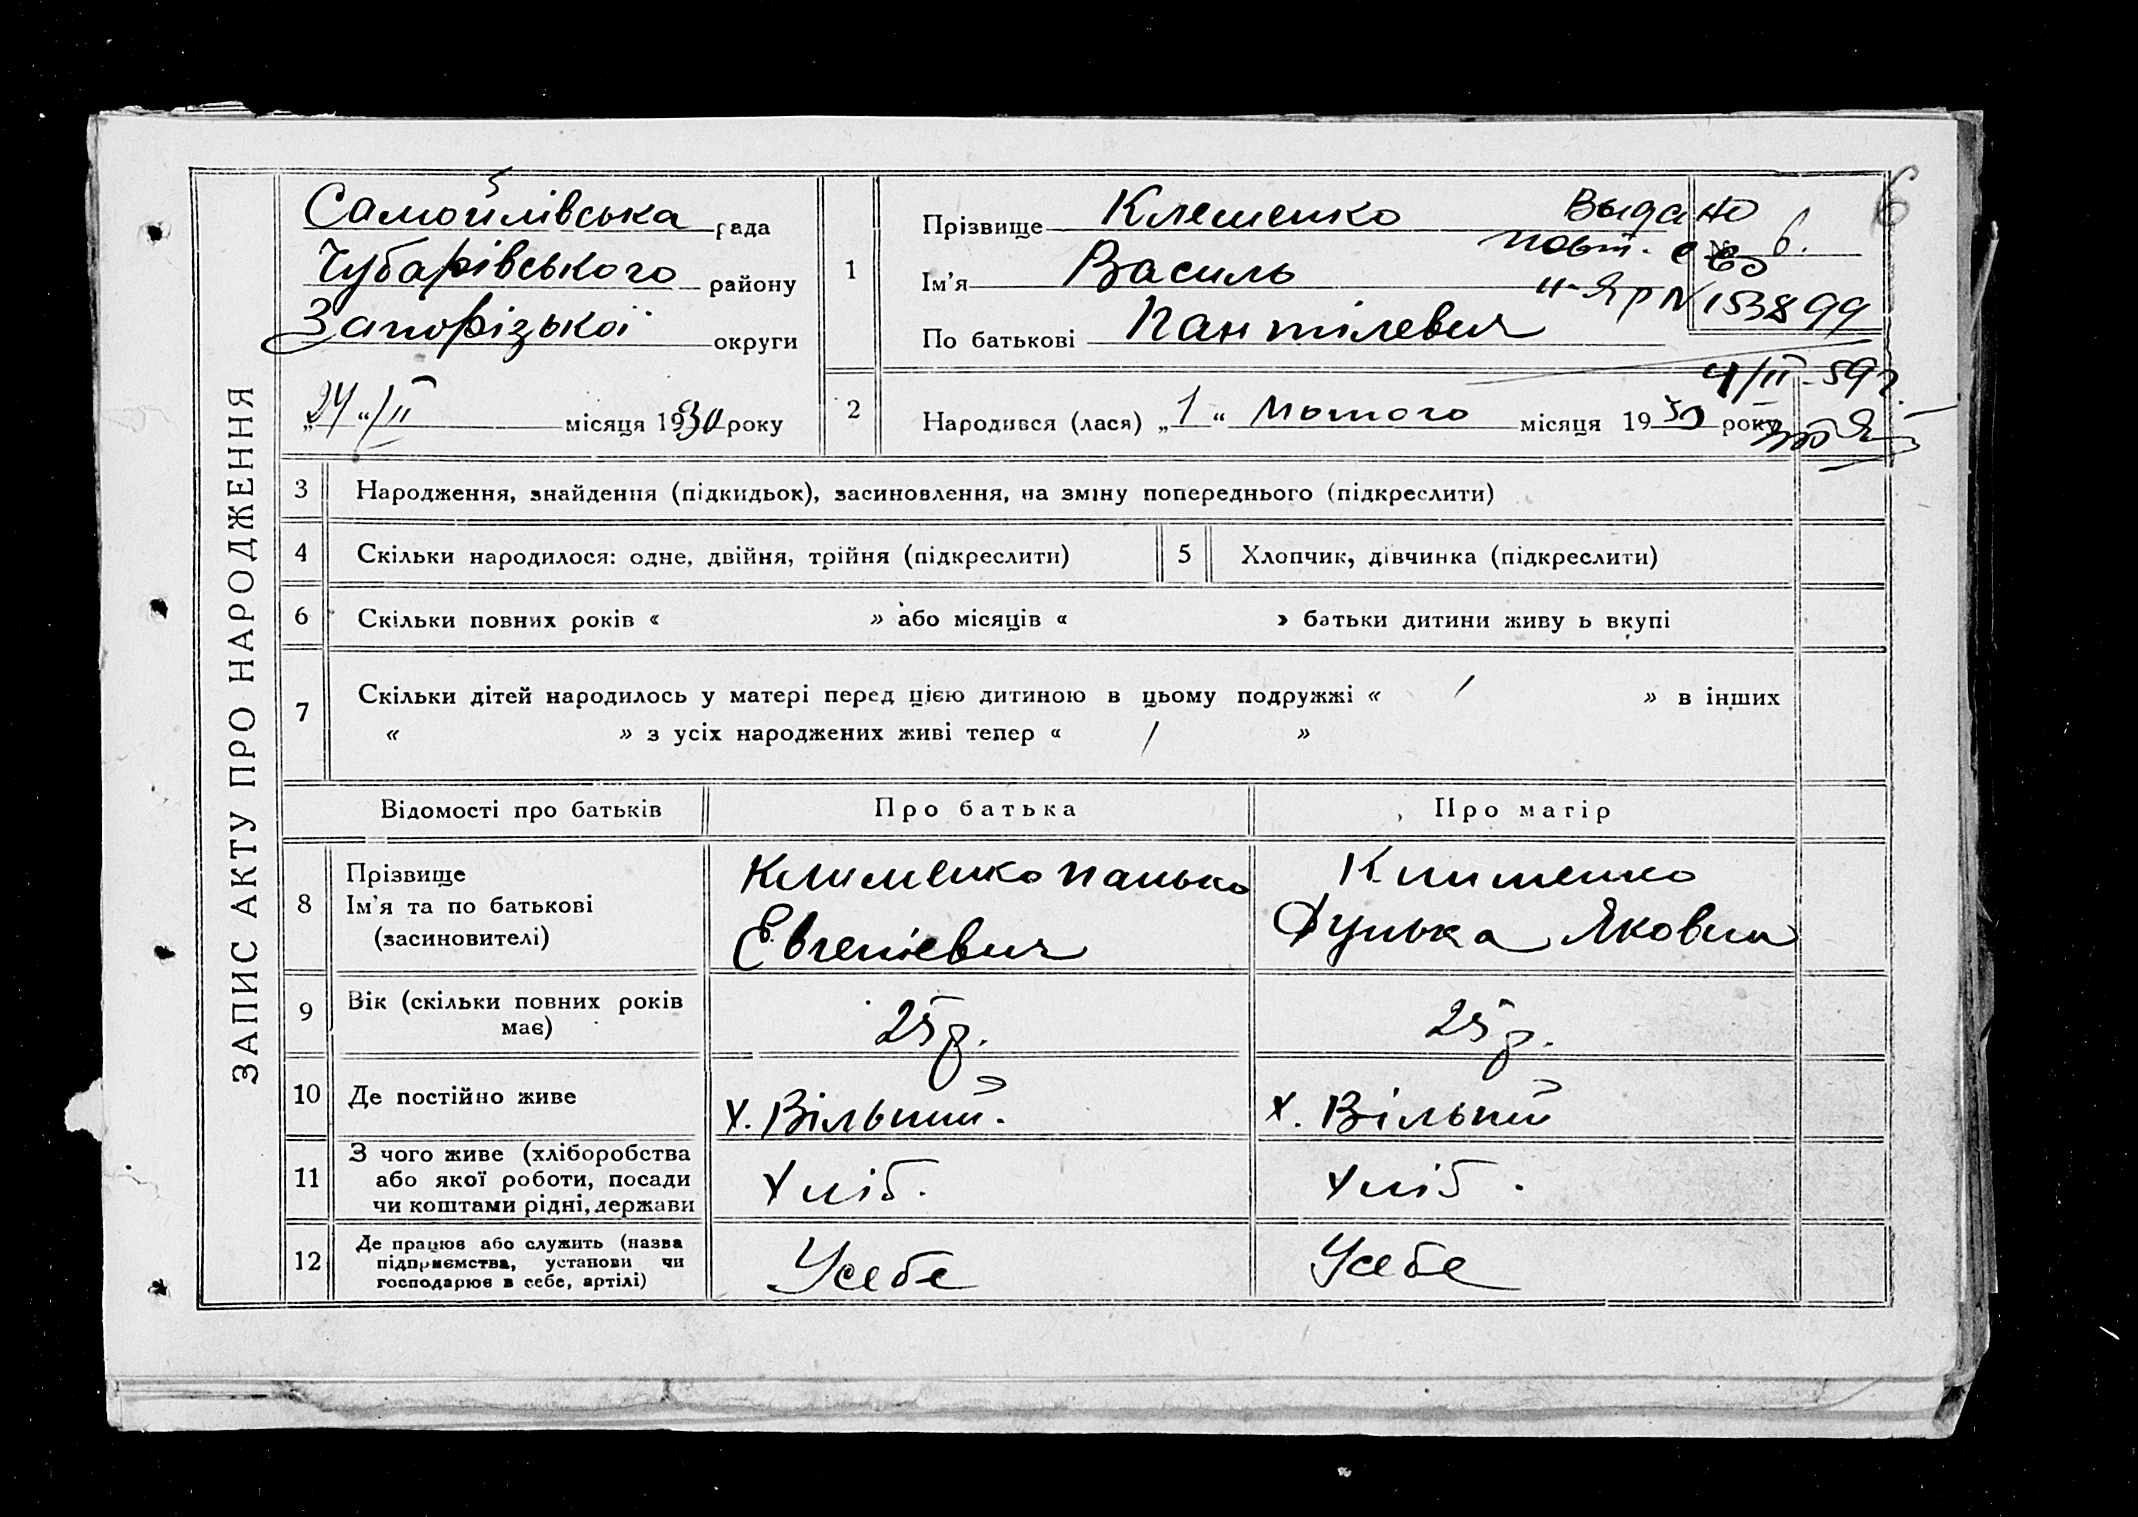 ЗАПИС АКТУ ПРО НАРОДЖЕННЯ
Самойлівська рада
Чубарівського району
Запорізької округи
„24“/II місяця 1930 року
1
Прізвище Клеменко
Ім'я Василь
По батькові Пантілевич
Выдано
повт. с во
№ 6.
ІІ-ЯР N 153899
4/II-59 г.
6
2
Народився (лася) „1“ Лютого місяця 1930 року
3
Народження, знайдення (підкидьок), засиновлення, на зміну попереднього (підкреслити)
4
Скільки народилося: одне, двійня, трійня (підкреслити)
5
Хлопчик, дівчинка (підкреслити)
6
Скільки повних років « » або місяців « » батьки дитини живу ь вкупі
7
Скільки дітей народилось у матері перед цією дитиною в цьому подружжі « / » в інших
« » з усіх народжених живі тепер « / »
Відомості про батьків
Про батька
Про матір
8
Прізвище
Ім'я та по батькові
(засиновителі)
Клименко Панько
Евгеніевич
Клименко
Дунька Яковл
9
Вік (скільки повних років
має)
25 р.
25 р.
10
Де постійно живе
х. Вільний.
х. Вільний
11
З чого живе (хліборобства
або якої роботи, посади
чи коштами рідні, держави
Хліб.
Хліб.
12
Де працює або служить (назва
підприємства, установи чи
господарює в себе, артілі)
Усебе
Усебе